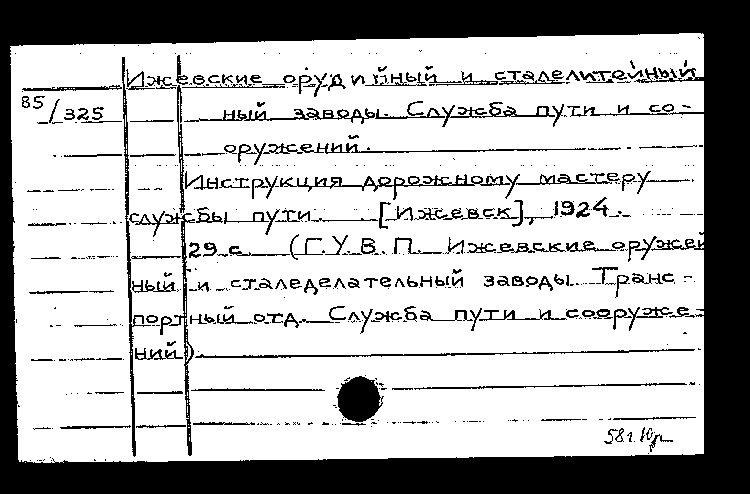 Ижевские орудийный и сталелитейный
85/325 ный заводы. Служба пути и со-
оружений.
Инструкция дорожному мастеру
службы пути. [Ижевск], 1924.
29 с. (Г.У.В.П. Ижевские оружей
ный и сталеделательный заводы. Транс-
портный отд. Служба пути и сооруже-
ний).
58г.